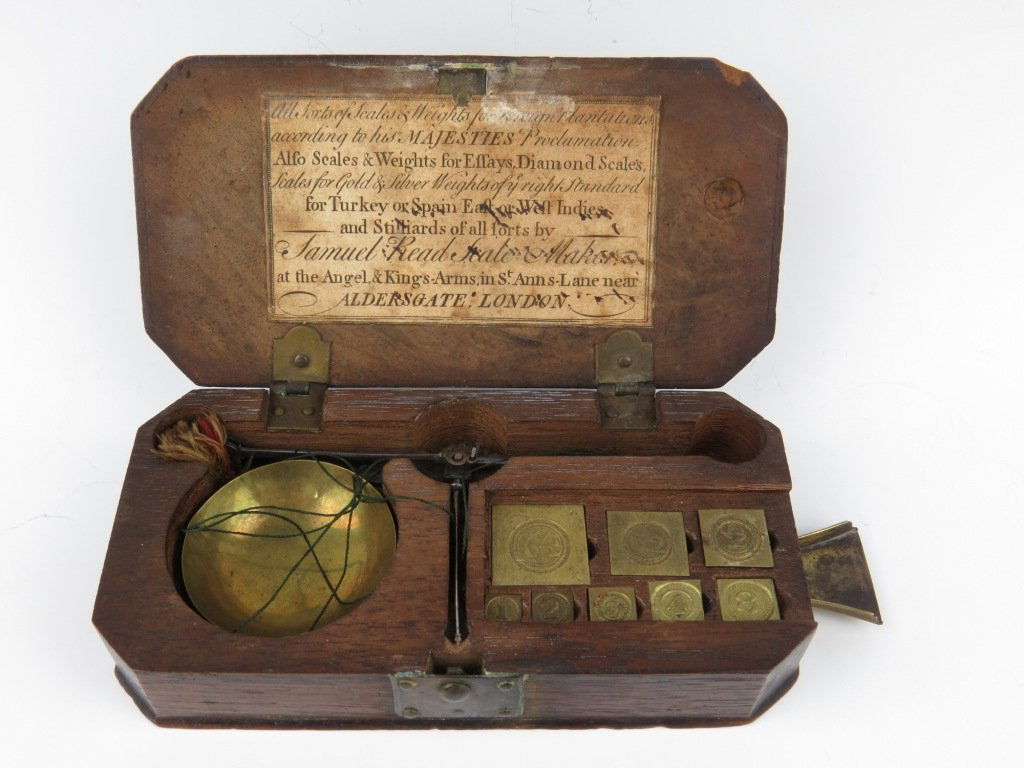 All Sorts of Scales & Weights for foreign Plantations
according to his MAJESTIES Proclamation.
Alſo Scales & Weights for Eſſays, Diamond Scales,
Scales for Gold & Silver Weights of yͤ right Standard
for Turkey or Spain Eaſt or Weſt Indies
and Stilliards of all ſorts by
Samuel Read Scale Maker
at the Angel, & Kings-Arms, in Sᵗ. Anns-Lane near
ALDERSGATE. LONDON.
1 2 3 4 8